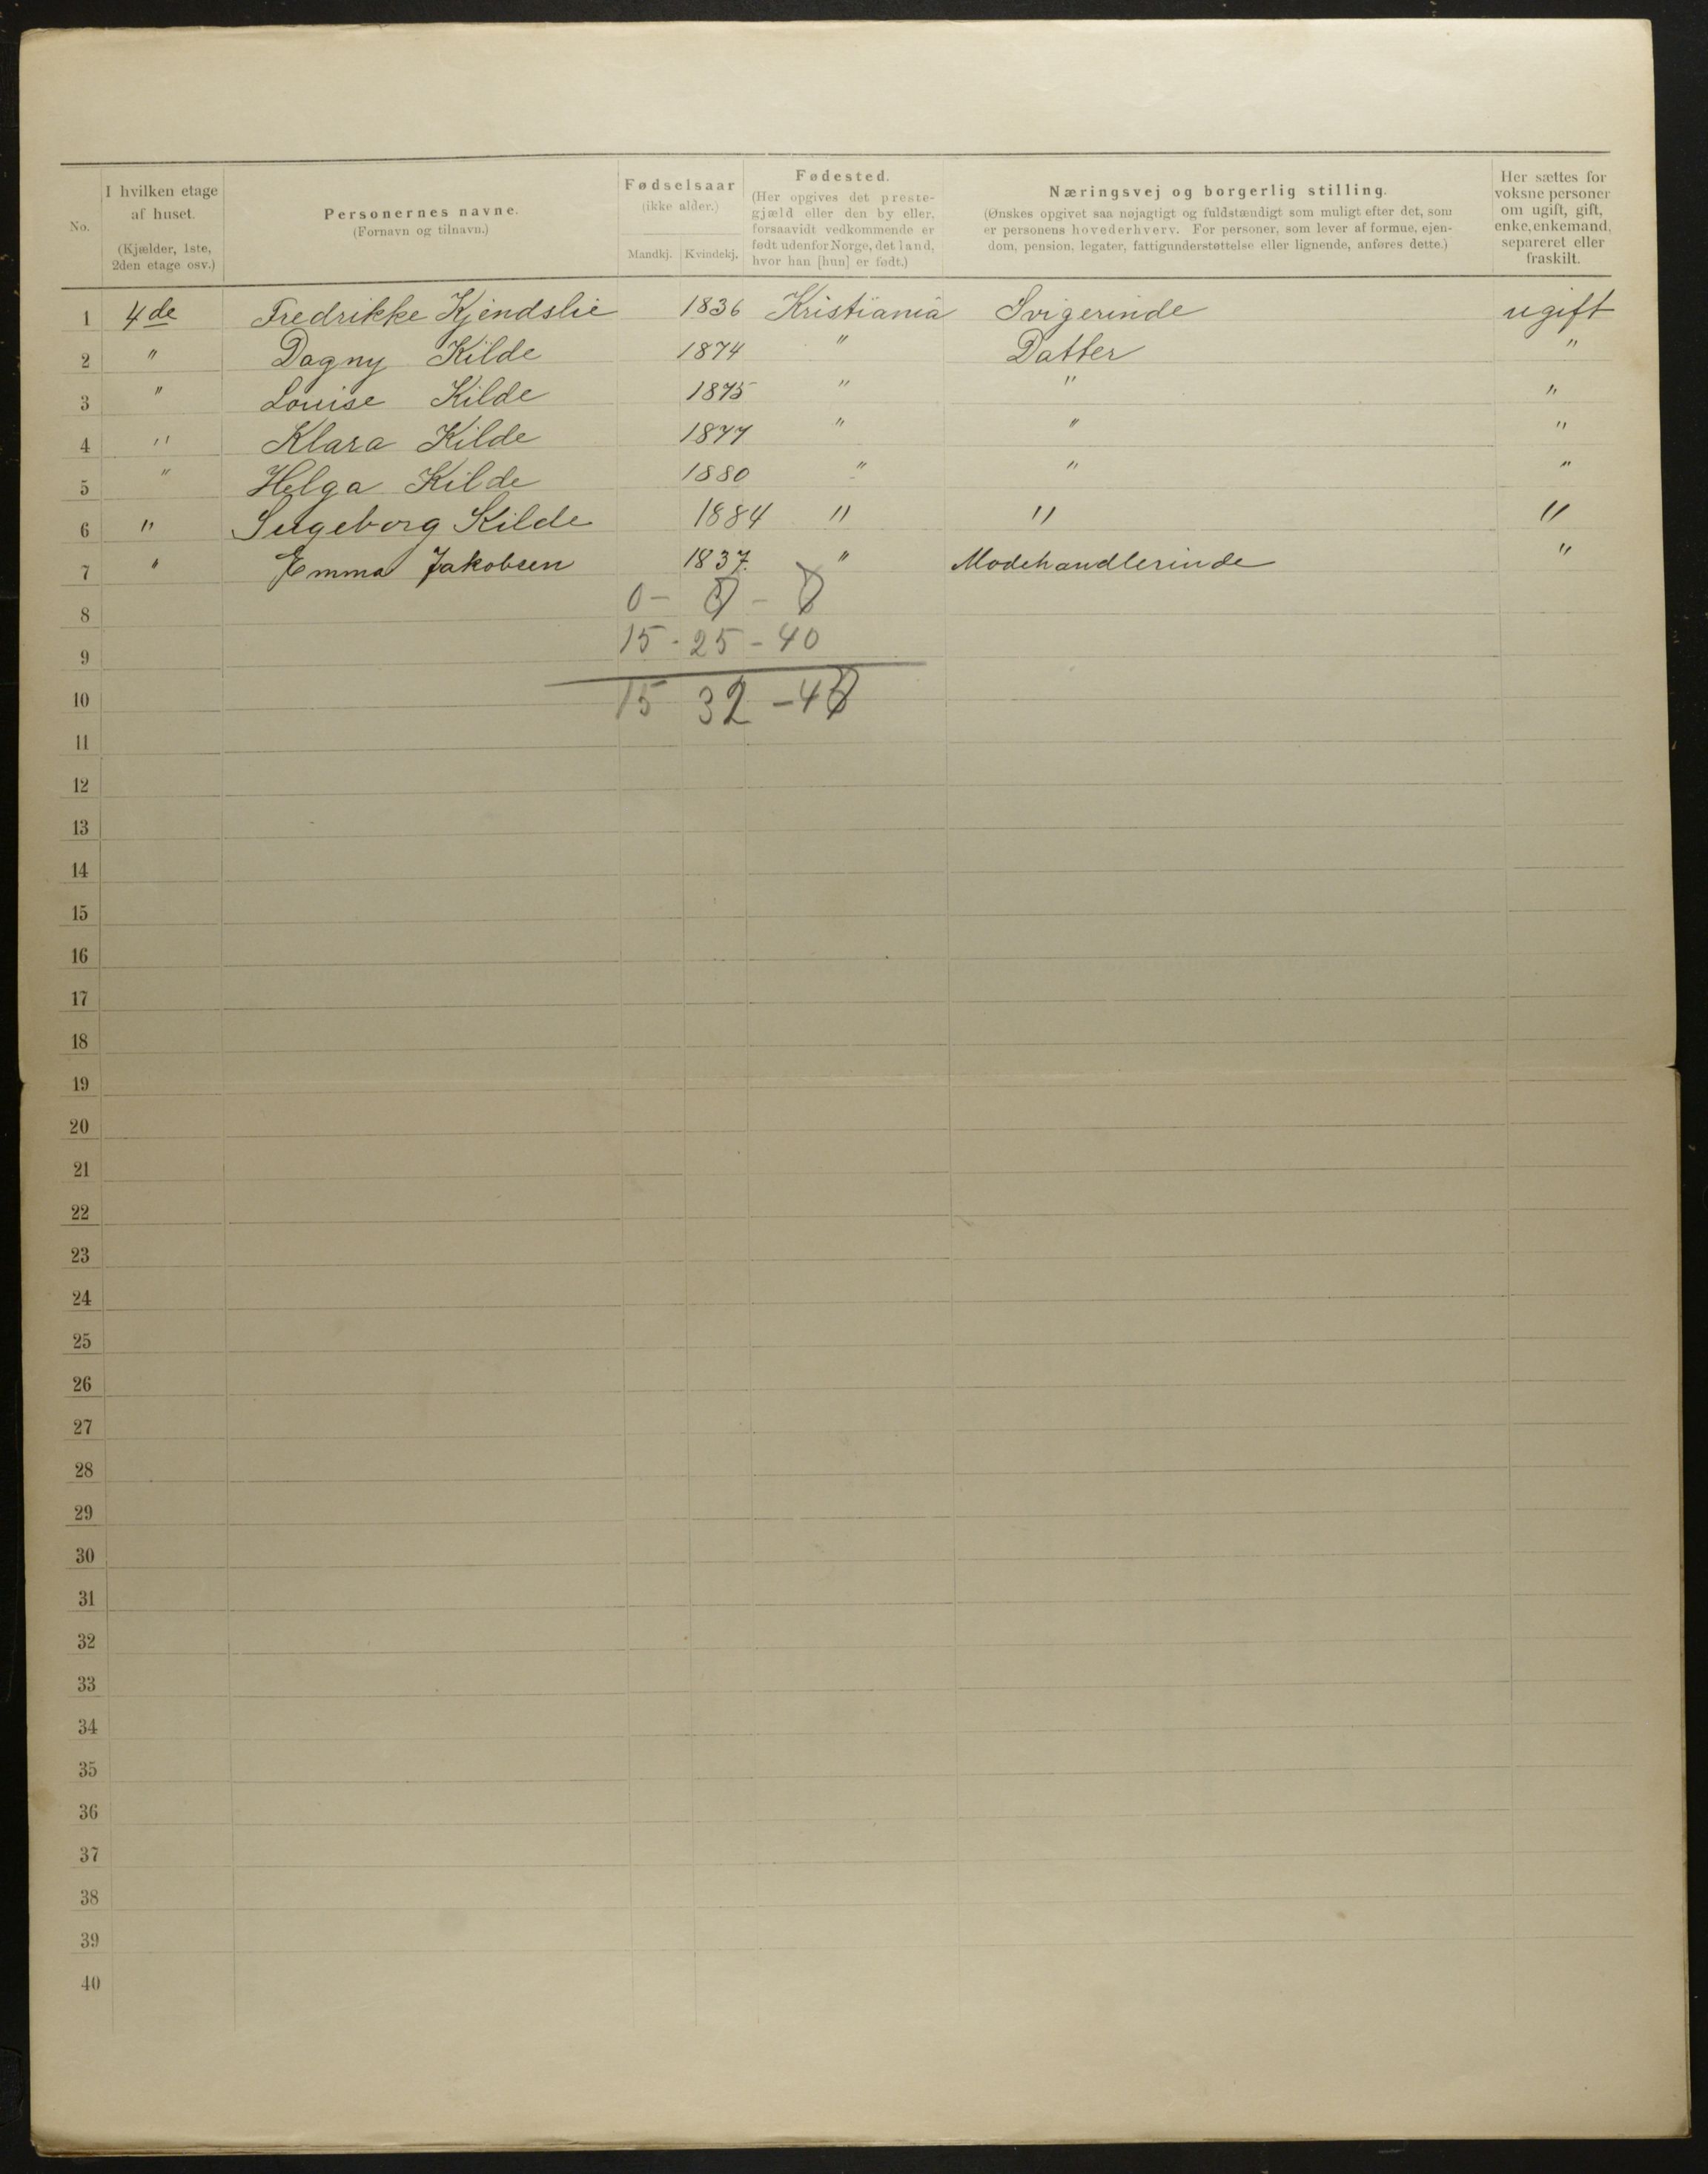 No.	I hvilken etage af huset. (Kjælder, 1ste, 2den etage osv.)	Personernes navne. (Fornavn og tilnavn.)	Fødselsaar (ikke alder.) Mandkj. Kvindekj.	Fødested. (Her opgives det prestegjæld eller den by eller, forsaavidt vedkommende er født udenfor Norge, det land, hvor han [hun] er født.)	Næringsvej og borgerlig stilling. (Ønskes opgivet saa nøjagtigt og fuldstændigt som muligt efter det, som er personens hovederhverv. For personer, som lever af formue, ejendom, pension, legater, fattigunderstøttelse eller lignende, anføres dette.)	Her sættes for voksne personer om ugift, gift, enke, enkemand, separeret eller fraskilt.
1 4de Fredrikke Kjendslie 1836 Kristiania Svigerinde ugift
2 " Dagny Kilde 1874 " Datter "
3 " Louise Kilde 1875 " " "
4 " Klara Kilde 1877 " " "
5 " Helga Kilde 1880 " " "
6 " Ingeborg Kilde 1884 " " "
7 " Emma Jakobsen 1837. " Modehandlerinde "
8 0 -
9 15 - 25 - 40
10 15 32 -
11
12
13
14
15
16
17
18
19
20
21
22
23
24
25
26
27
28
29
30
31
32
33
34
35
36
37
38
39
40